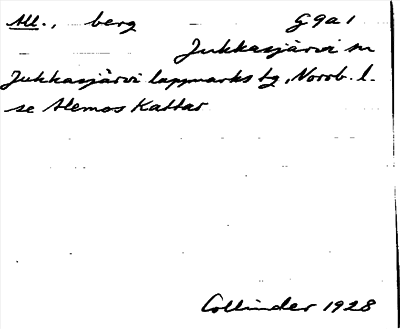 All., berg G9a1
Jukkasjärvi sn
Jukkasjärvi lappmarks tg, Norrb. l.
se Alemos Kattar
Collinder 1928